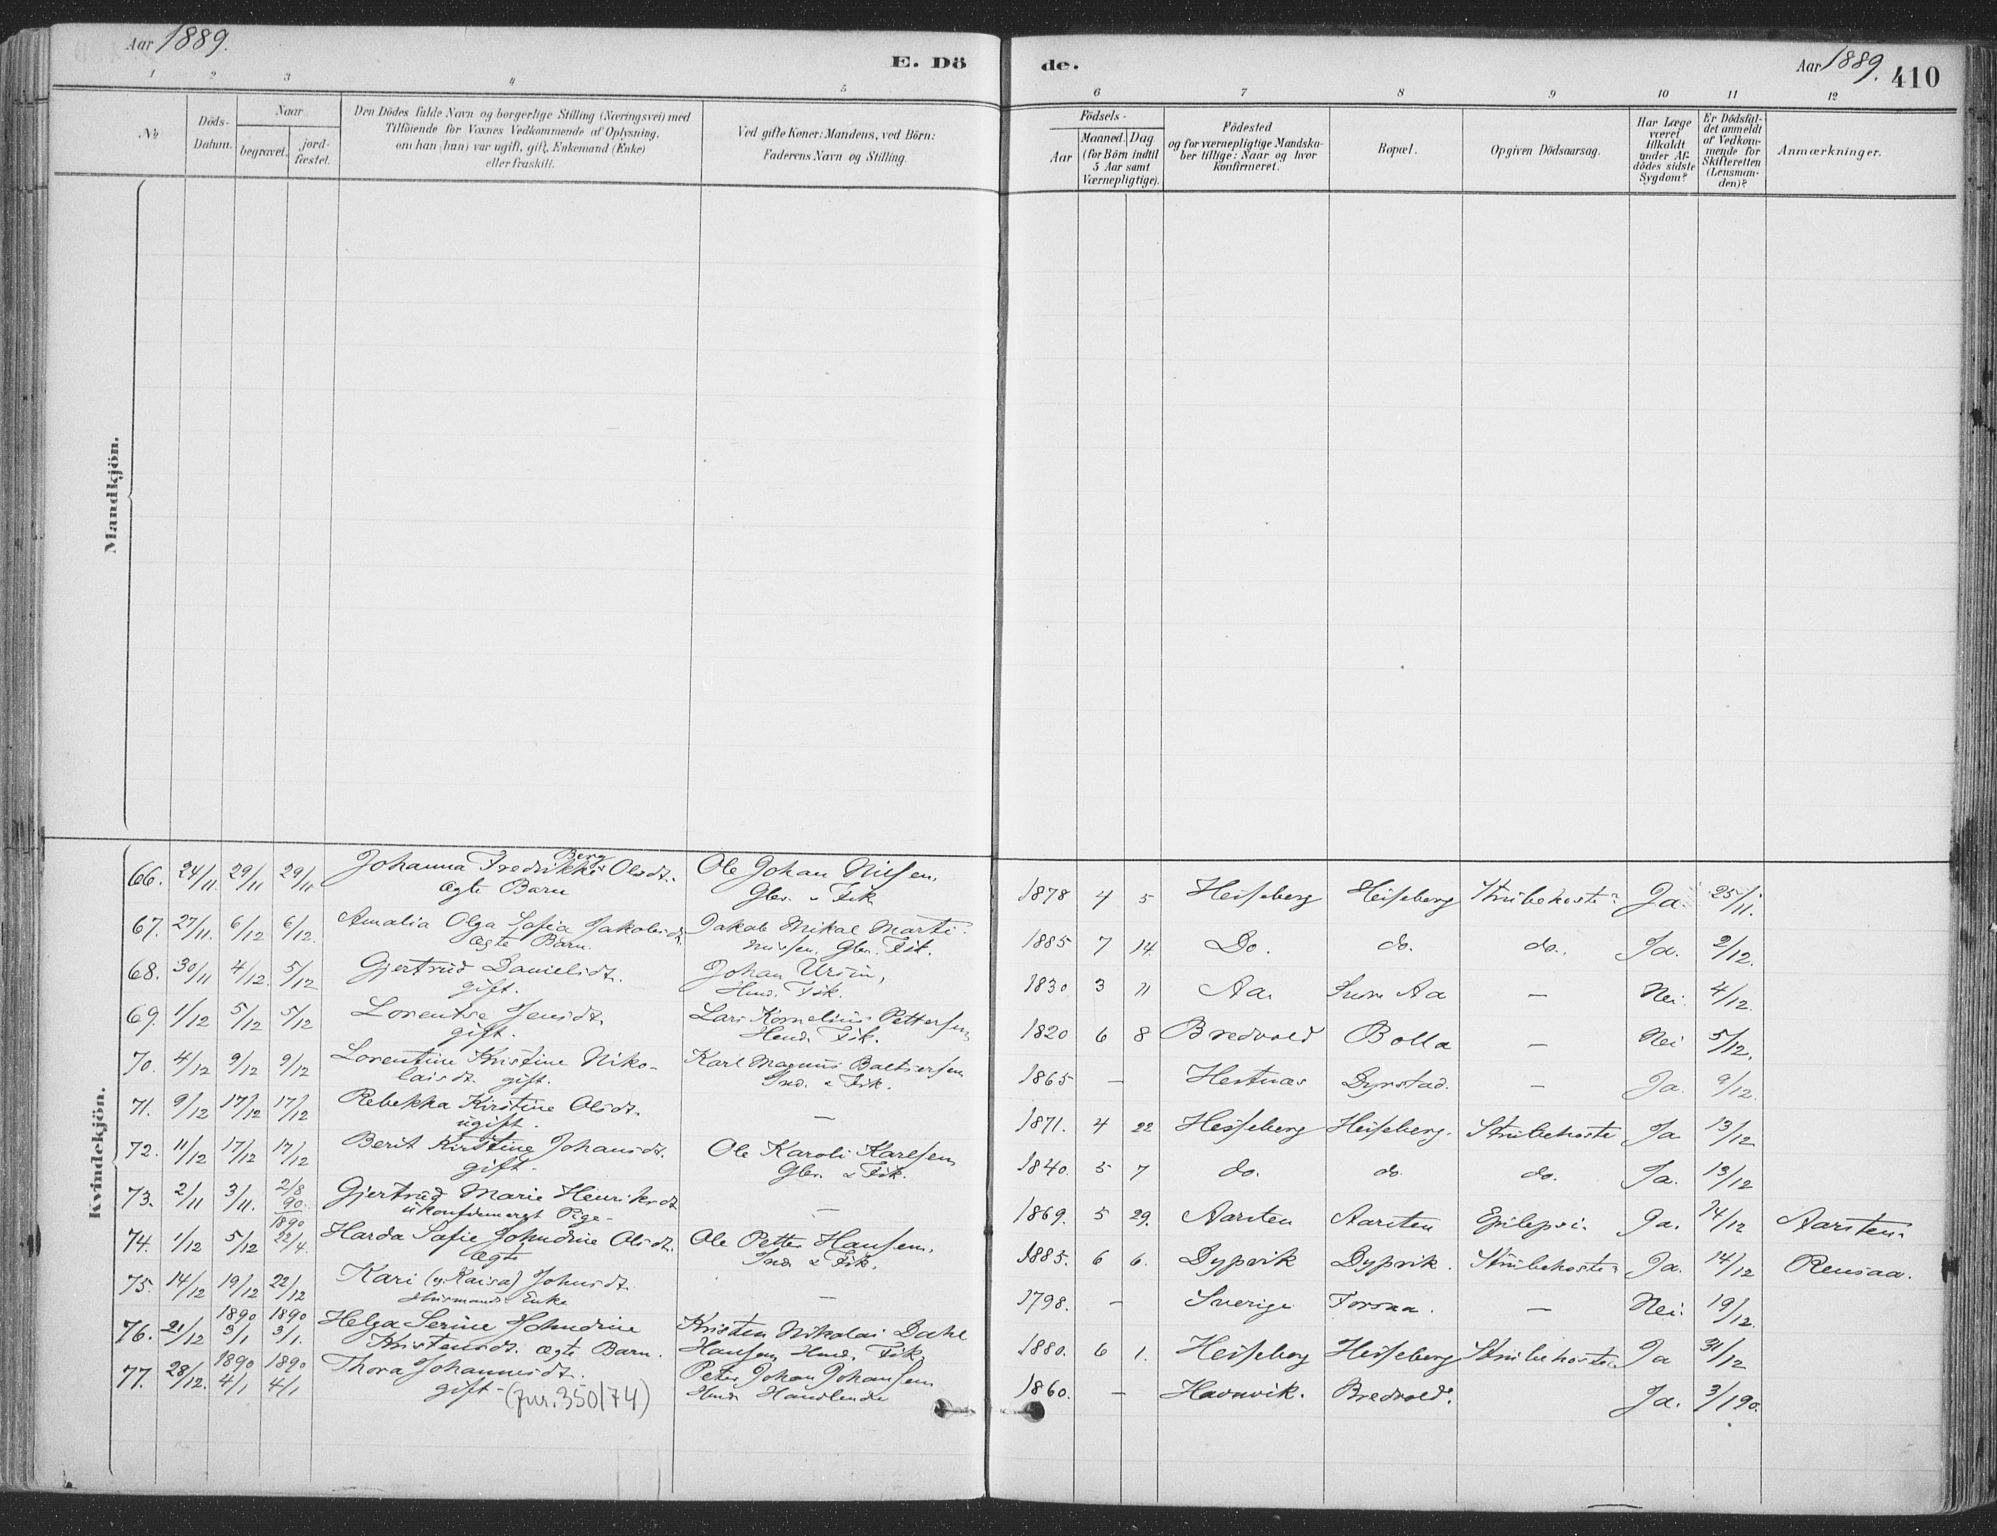 Aar 1889.
E. Dö
de.
Aar 1889.
410
1 2 3 4 5 6 7 8 9 10 11 12
No
Döds-
Datum.
Naar
begravet.
jord-
fæstet.
Den Dödes fulde Navn og borgerlige Stilling (Næringsvei) med
Tilföiende for Voxnes Vedkommende af Oplysning,
om han (hun) var ugift, gift, Enkemand (Enke)
eller fraskilt.
Ved gifte Koner: Mandens, ved Börn:
Faderens Navn og Stilling.
Födsels-
Aar
Maaned. Dag.
(for Börn indtil
5 Aar samt
Værnepligtige).
Födested
og for værnepligtige Mandska-
ber tillige: Naar og hvor
konfirmeret.
Bopæl.
Opgiven Dödsaarsag.
Har Læge
været
tilkaldt
under Af-
dödes sidste
Sygdom?
Er Dödsfal-
det anmeldt
af Vedkom-
mende for
Skifteretten
(Lensman-
den)?
Anmærkninger.
Mandkjön.
Kvindekjön.
66. 24/11 29/11 29/11 Johanna Fredrikke Berg Olsdt. Ole Johan Nilsen,
ægte Barn Gbr. & Fisk
1878 4 5 Heisseberg Heisseberg Strubehoste Ja. 25/11.
67. 27/11. 6/12 6/12. Amalia Olga Sofia Jakobsdt. Jakob Mikal Marti-
ægte Barn. nussen, Gbr. Fisk.
1885 7 14. Do. do. do. Ja. 2/12.
68. 30/11 4/12. 5/12 Gjertrud Danielsdt. Johan Ursin,
gift. Hmd. Fisk.
1830 3 11 Aa Aa — Nei. 4/12.
69. 1/12 5/12 5/12 Lorentse Jensdt. Lars Kornelius Pettersen
gift. Hmd. Fisk.
1820 6 8 Bredvold Bolla — Nei 5/12.
70. 4/12 9/12 9/12 Lorentine Kristine Niko- Karl Magnus Baltsersen
laisdt. gift. Ind. & Fisk.
1865 — Hestnæs Dyrstad. — Ja. 9/12.
71. 9/12 17/12 17/12 Rebekka Kirstine Olsdt. —
ugift.
1871. 4 22 Heisseberg Heisseberg. Strubehoste Ja 13/12
72. 11/12 17/12 17/12 Berit Kirstine Johansdt. Ole Karoli Karlsen
gift. Gbr. & Fisk.
1840. 5 7 do. do do. Ja. 13/12
73. 2/11 3/11. 2/8 90. Gjertrud Marie Henriksdt —
ukonfirmeret Pige.
1869. 5 29. Aarsten Aarsten Epilepsi Ja. 14/12 Aarsten.
74. 1/12 5/12 1890 22/4. Harda Sofie Johndine Olsdt. Ole Petter Hansen,
ægte Ind. & Fisk.
1885. 6 6. Dypvik Dypvik. Strubehoste Ja. 14/12 Rensaa.
75. 14/12 19/12 22/12 Kari (g. Kaisa) Johnsdt. —
Husmands Enke
1798. — Sverige Forsaa. — Nei. 19/12.
76. 21/12 1890 3/1 1890 3/1. Helga Serine Johndine Kristen Nikolai Dahl
Kristensdt. ægte Barn. Hansen, Hmd. Fisk.
1880. 6 1. Heisseberg Heisseberg Strubehoste Ja 31/12
77. 28/12. 1890 4/1 1890 4/1 Thora Johannesdt. Peter Johan Johansen
gift. (jur. 350/74) Hmd. Handlende
1860. — Havnvik. Bredvold. Ja. 3/1 90.